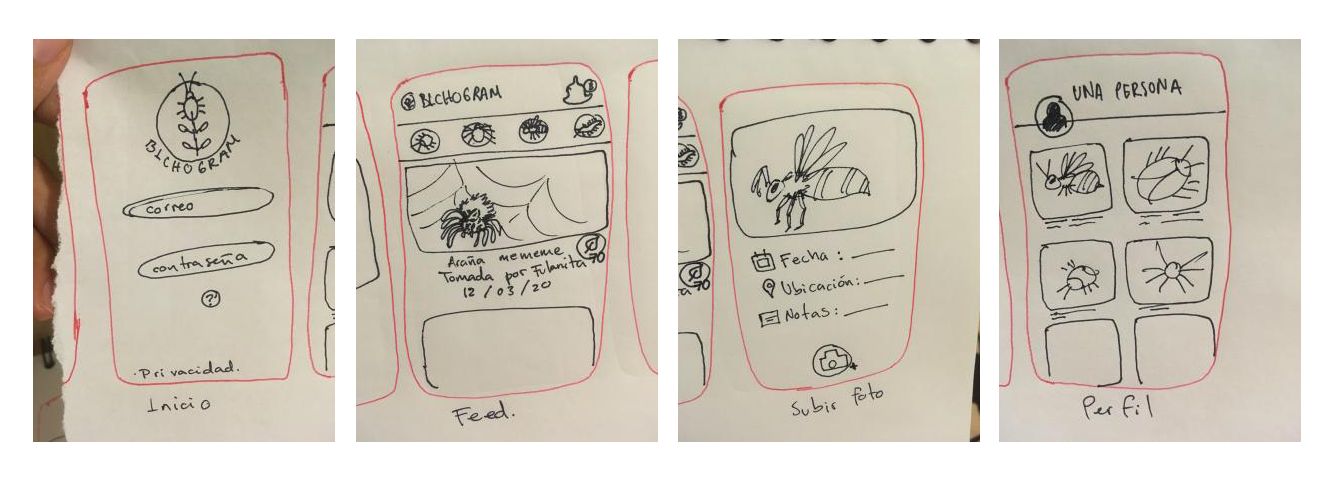 BICHOGRAM
correo
contraseña
?
· Privacidad.
Inicio
BICHOGRAM
Araña mememe
Tomada por Fulanita
70
12 / 03 / 20
Feed.
Fecha :
Ubicación:
Notas:
Subir foto
UNA PERSONA
Perfil